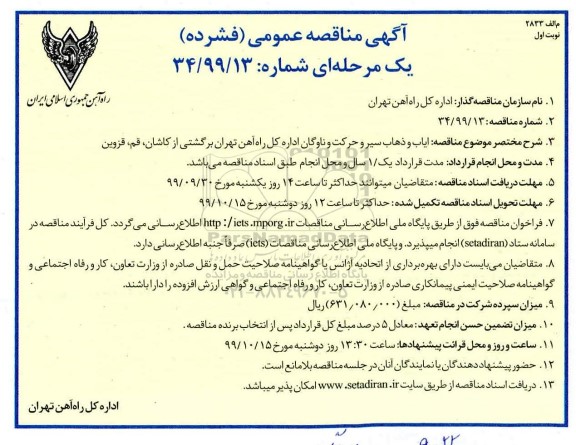 م‌الف ۲۸۳۳
نوبت اول
آگهی مناقصه عمومی (فشرده)
یک مرحله‌ای شماره: ۳۴/۹۹/۱۳
راه‌آهن جمهوری اسلامی ایران
۱. نام سازمان مناقصه‌گذار: اداره کل راه‌آهن تهران
۲. شماره مناقصه: ۳۴/۹۹/۱۳
۳. شرح مختصر موضوع مناقصه: ایاب و ذهاب سیر و حرکت و ناوگان اداره کل راه‌آهن تهران برگشتی از کاشان، قم، قزوین
۴. مدت و محل انجام قرارداد: مدت قرارداد یک/۱ سال و محل انجام طبق اسناد مناقصه می‌باشد.
۵. مهلت دریافت اسناد مناقصه: متقاضیان میتوانند حداکثر تا ساعت ۱۴ روز یکشنبه مورخ ۹۹/۰۹/۳۰
۶. مهلت تحویل اسناد مناقصه تکمیل شده: حداکثر تا ساعت ۱۲ روز دوشنبه مورخ ۹۹/۱۰/۱۵
۷. فراخوان مناقصه فوق از طریق پایگاه ملی اطلاع‌رسانی مناقصات http://iets.mporg.ir اطلاع‌رسانی می‌گردد. کل فرآیند مناقصه در
سامانه ستاد (setadiran) انجام میپذیرد. و پایگاه ملی اطلاع‌رسانی مناقصات (iets) صرفاً جنبه اطلاع‌رسانی دارد.
۸. متقاضیان می‌بایست دارای بهره‌برداری از اتحادیه آژانس یا گواهینامه صلاحیت حمل و نقل صادره از وزارت تعاون، کار و رفاه اجتماعی و
گواهینامه صلاحیت ایمنی پیمانکاری صادره از وزارت تعاون، کار و رفاه اجتماعی و گواهی ارزش افزوده را دارا باشند.
۹. میزان سپرده شرکت در مناقصه: مبلغ (۶۳۱,۰۸۰,۰۰۰) ریال
۱۰. میزان تضمین حسن انجام تعهد: معادل ۵ درصد مبلغ کل قرارداد پس از انتخاب برنده مناقصه.
۱۱. ساعت و روز و محل قرائت پیشنهادها: ساعت ۱۳:۳۰ روز دوشنبه مورخ ۹۹/۱۰/۱۵
۱۲. حضور پیشنهاد دهندگان یا نمایندگان آنان در جلسه مناقصه بلامانع است.
۱۳. دریافت اسناد مناقصه از طریق سایت www.setadiran.ir امکان پذیر میباشد.
اداره کل راه‌آهن تهران